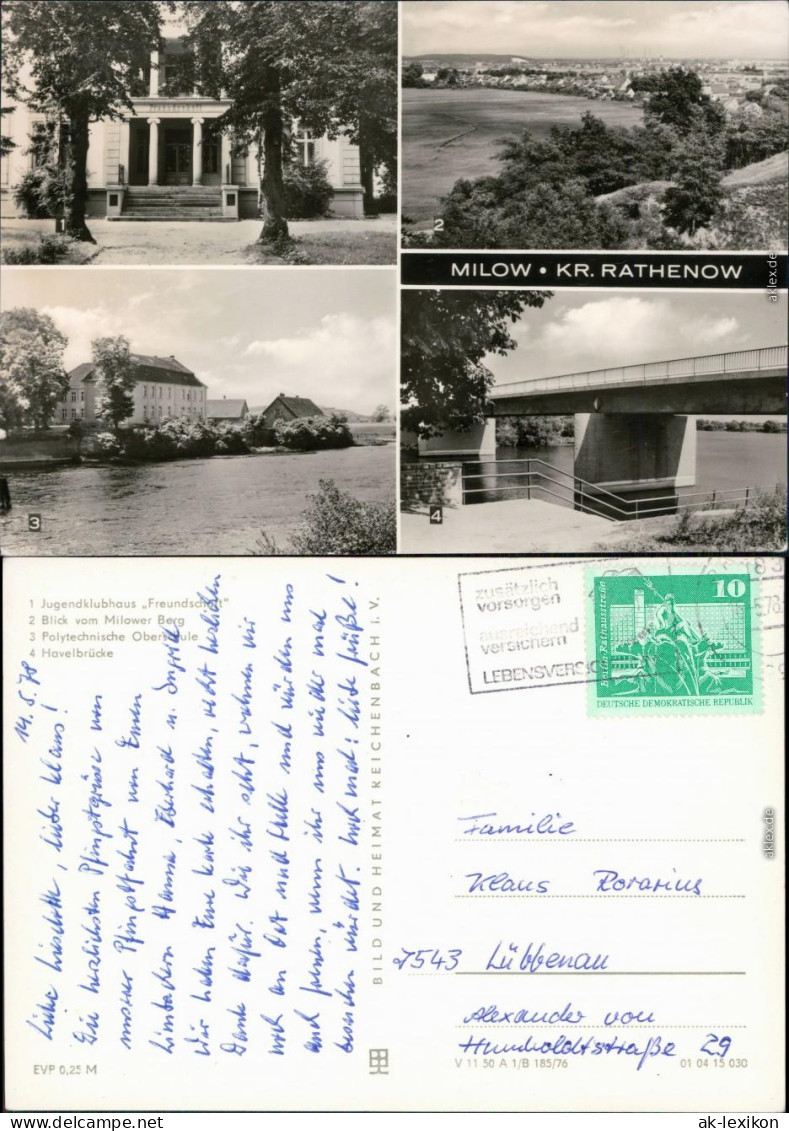 2
MILOW • KR. RATHENOW
3
4
aklex.de
1 Jugendklubhaus „Freundschaft"
2 Blick vom Milower Berg
3 Polytechnische Oberschule
4 Havelbrücke
14.5.78
Liebe Lieselotte, lieber Klaus!
Die herzlichsten Pfingstgrüße von
unserer Pfingstfahrt von Euren
Hanna, Eberhard u. Ingrid
Wir haben Eure Karte erhalten, recht herzlichen
Dank dafür. Wie ihr seht, wohnen wir
noch an Ort und Stelle und würden uns
auch freuen, wenn ihr uns wieder mal
besuchen würdet. Noch mal: liebe Grüße!
BILD UND HEIMAT REICHENBACH i. V.
zusätzlich
vorsorgen
ausreichend
versichern
LEBENSVERSIC
Berlin · Rathausstraße
10
DEUTSCHE DEMOKRATISCHE REPUBLIK
Familie
Klaus Rorarius
7543 Lübbenau
Alexander von
Humboldtstraße 29
EVP 0,25 M
V 11 50 A 1/B 185/76
01 04 15 030
aklex.de
www.ansichtskarten-lexikon.de
ak-lexikon